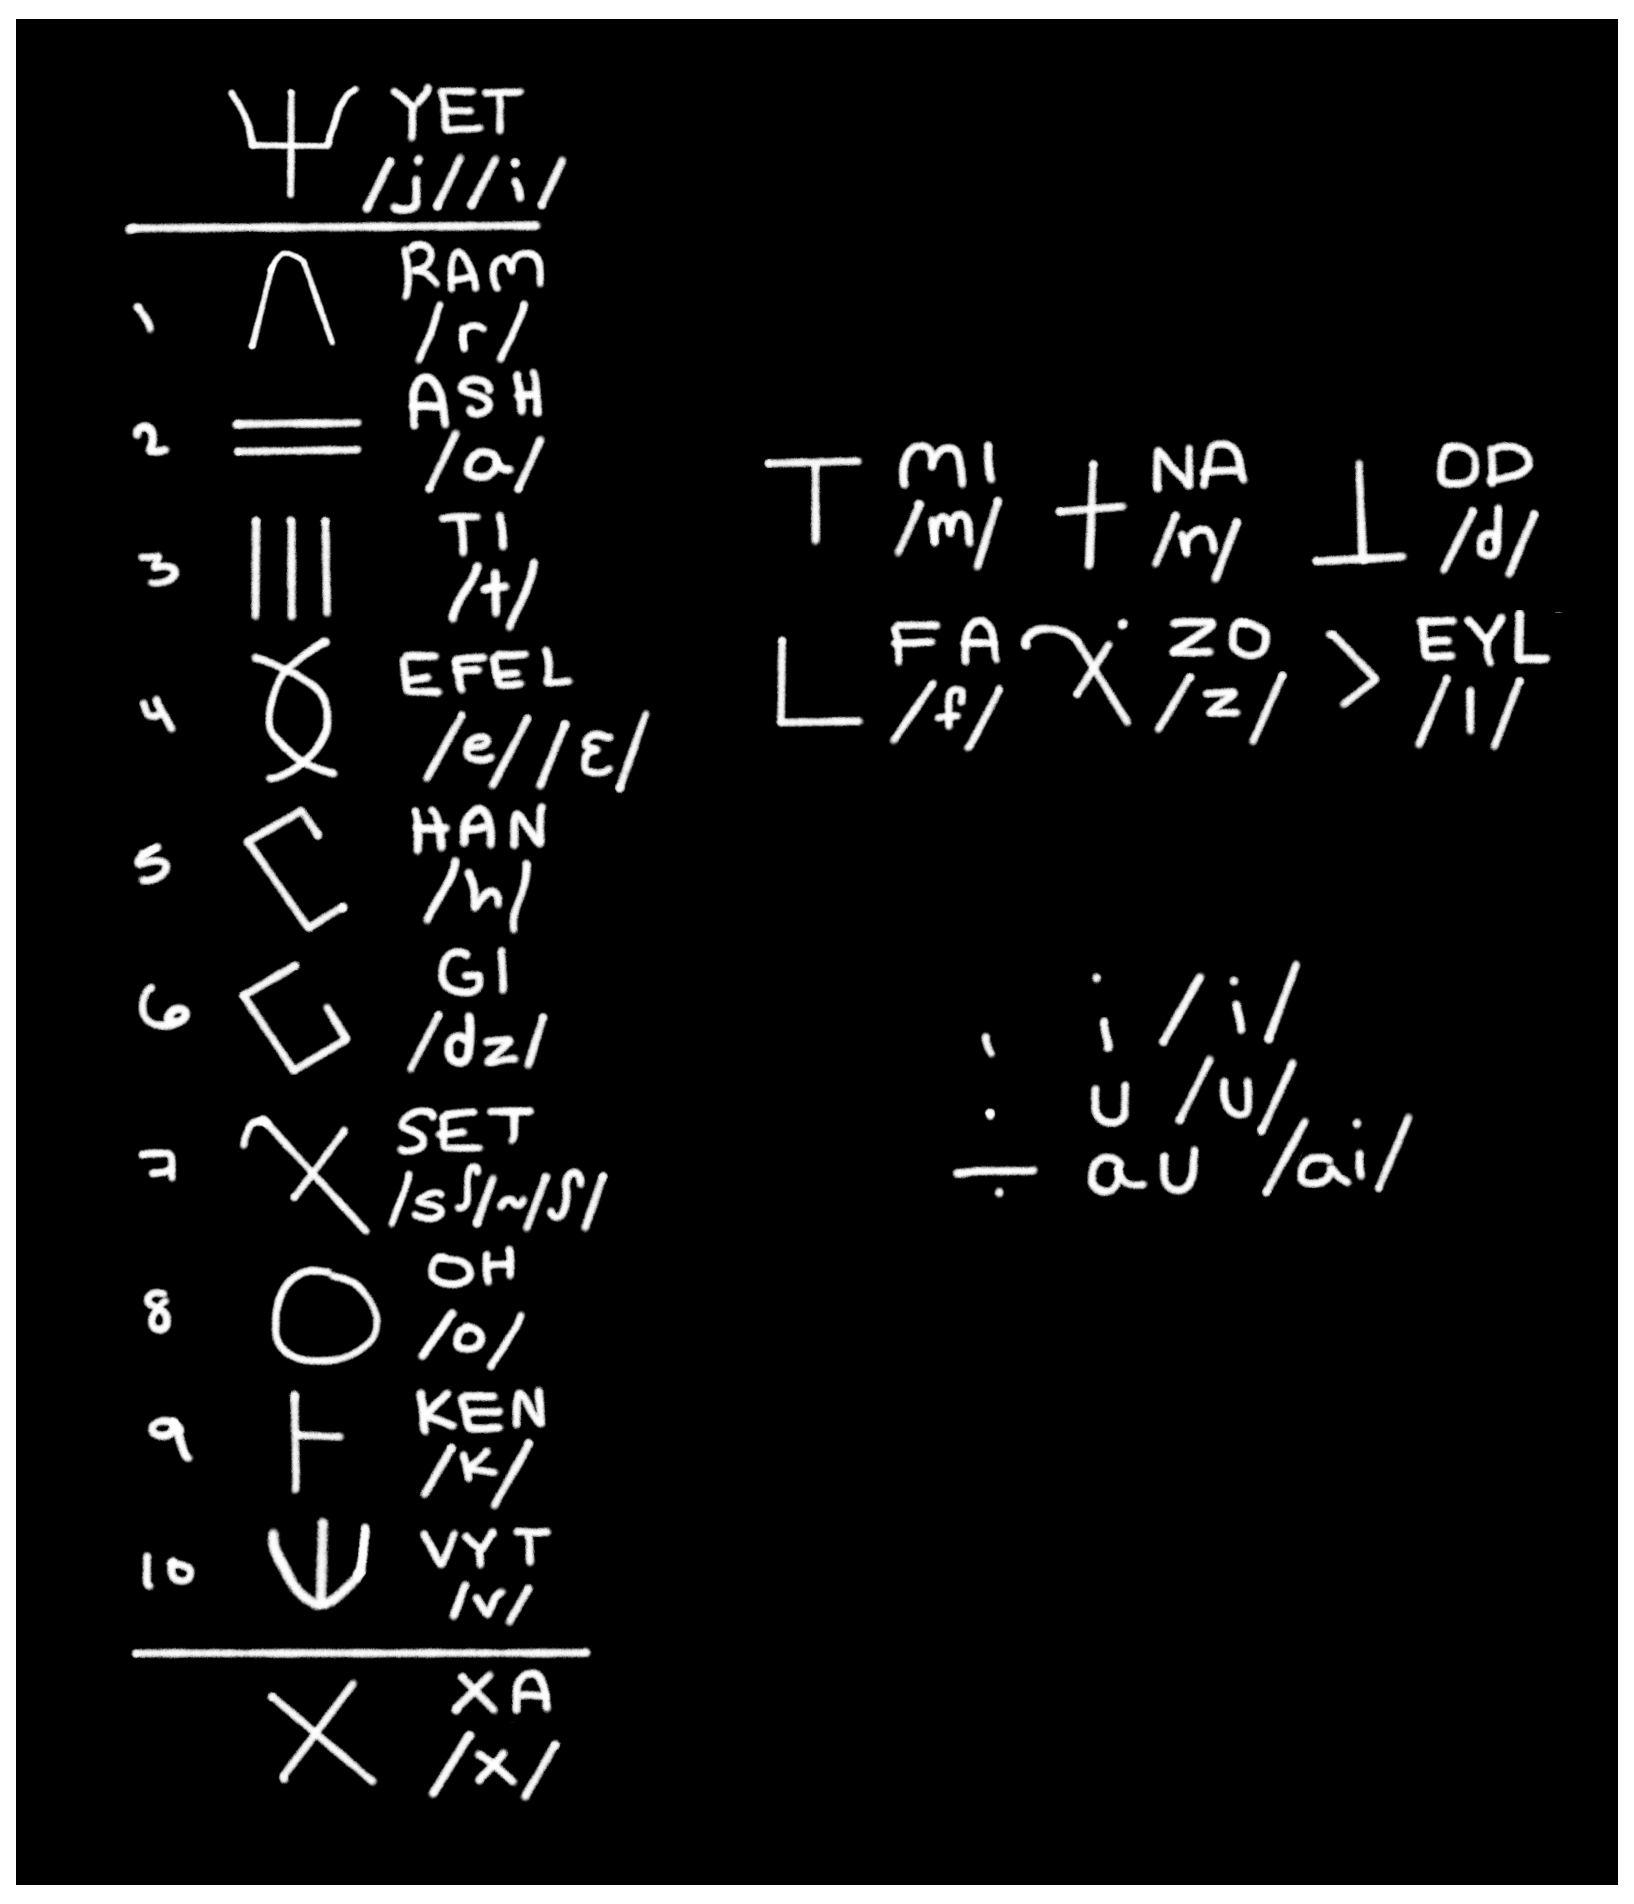 YET
/j//i/
1 RAM
/r/
2 ASH
/a/
3 TI
/t/
4 EFEL
/e//ɛ/
5 HAN
/h/
6 GI
/dz/
7 SET
/sʃ/~/ʃ/
8 OH
/o/
9 KEN
/k/
10 VYT
/v/
XA
/x/
MI NA OD
/m/ /n/ /d/
FA ZO EYL
/f/ /z/ /l/
i /i/
u /u/
au /ai/